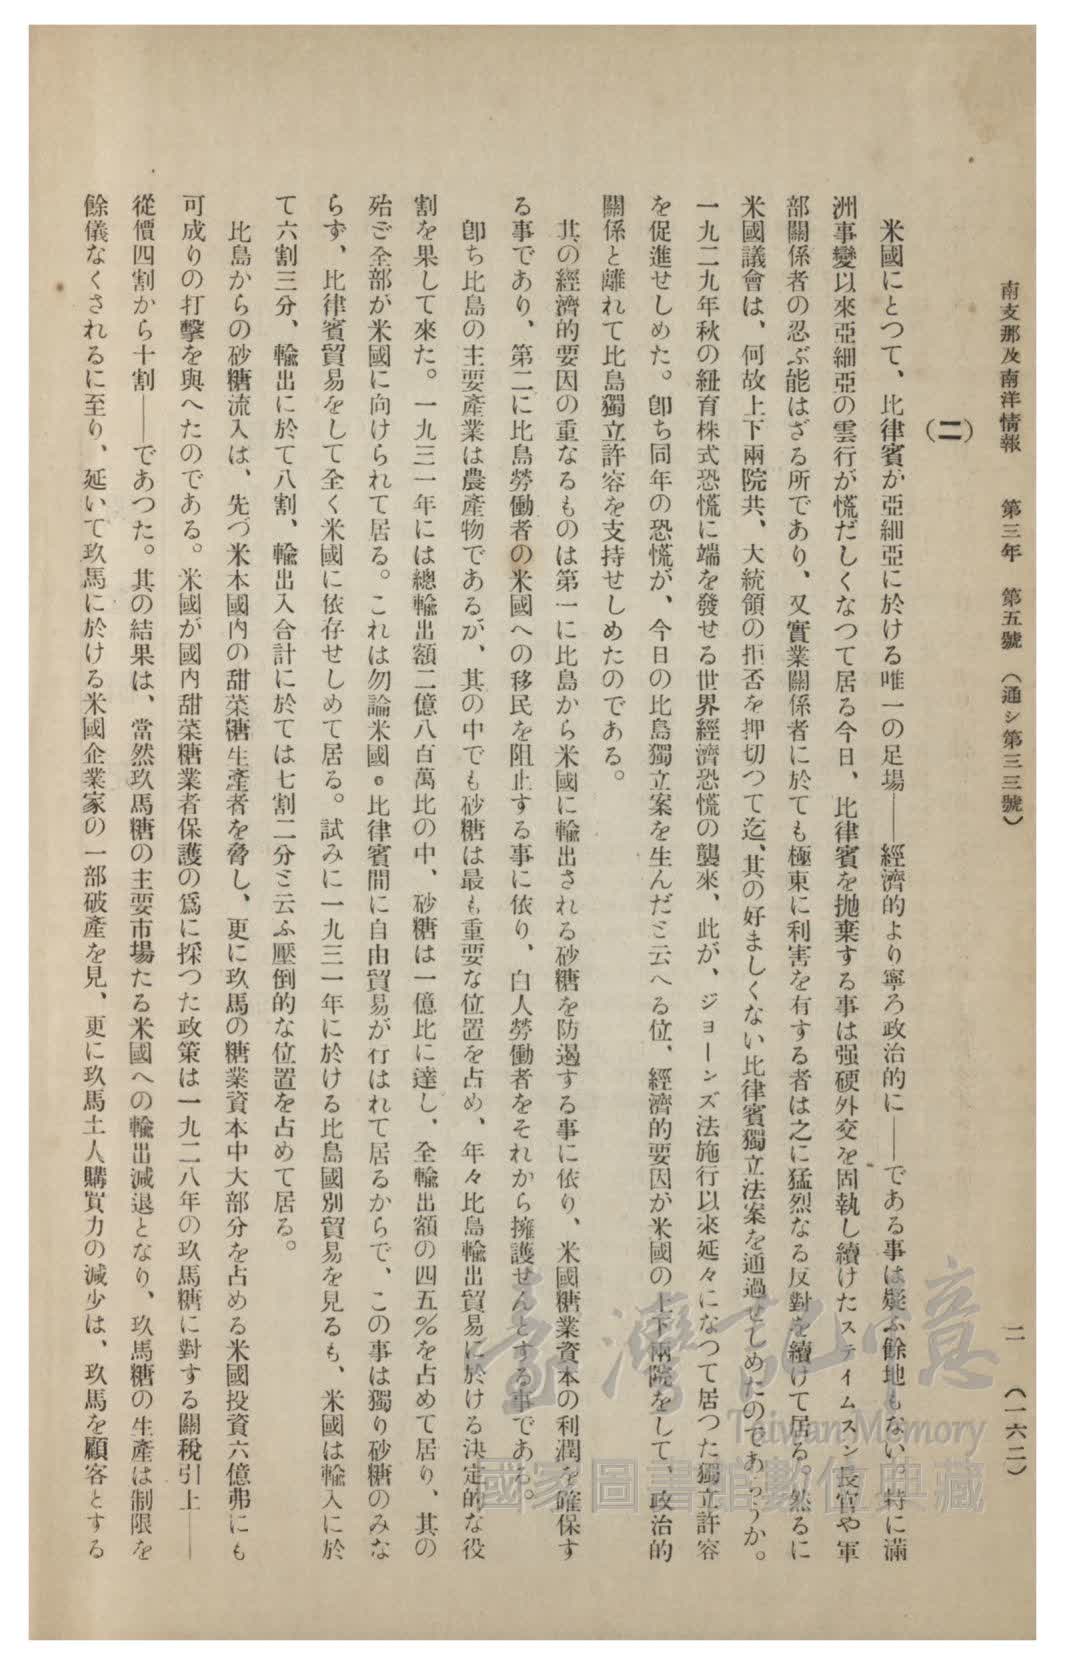 南支那及南洋情報　第三年　第五號　（通シ第三三號）　二　（一六二）
（二）
米國にとつて、比律賓が亞細亞に於ける唯一の足場――經濟的より寧ろ政治的に――である事は疑ふ餘地もない。特に滿
洲事變以來亞細亞の雲行が慌だしくなつて居る今日、比律賓を抛棄する事は强硬外交を固執し續けたスティムスン長官や軍
部關係者の忍ぶ能はざる所であり、又實業關係者に於ても極東に利害を有する者は之に猛烈なる反對を續けて居る。然るに
米國議會は、何故上下兩院共、大統領の拒否を押切つて迄、其の好ましくない比律賓獨立法案を通過せしめたのであらうか。
一九二九年秋の紐育株式恐慌に端を發せる世界經濟恐慌の襲來、此が、ジョーンズ法施行以來延々になつて居つた獨立許容
を促進せしめた。卽ち同年の恐慌が、今日の比島獨立案を生んだと云へる位、經濟的要因が米國の上下兩院をして、政治的
關係と離れて比島獨立許容を支持せしめたのである。
其の經濟的要因の重なるものは第一に比島から米國に輸出される砂糖を防遏する事に依り、米國糖業資本の利潤を確保す
る事であり、第二に比島勞働者の米國への移民を阻止する事に依り、白人勞働者をそれから擁護せんとする事である。
卽ち比島の主要產業は農產物であるが、其の中でも砂糖は最も重要な位置を占め、年々比島輸出貿易に於ける決定的な役
割を果して來た。一九三一年には總輸出額二億八百萬比の中、砂糖は一億比に達し、全輸出額の四五％を占めて居り、其の
殆ど全部が米國に向けられて居る。これは勿論米國・比律賓間に自由貿易が行はれて居るからで、この事は獨り砂糖のみな
らず、比律賓貿易をして全く米國に依存せしめて居る。試みに一九三一年に於ける比島國別貿易を見るも、米國は輸入に於
て六割三分、輸出に於て八割、輸出入合計に於ては七割二分と云ふ壓倒的な位置を占めて居る。
比島からの砂糖流入は、先づ米本國內の甜菜糖生產者を脅し、更に玖馬の糖業資本中大部分を占める米國投資六億弗にも
可成りの打擊を與へたのである。米國が國內甜菜糖業者保護の爲に採つた政策は一九二八年の玖馬糖に對する關稅引上――
從價四割から十割――であつた。其の結果は、當然玖馬糖の主要市場たる米國への輸出減退となり、玖馬糖の生產は制限を
餘儀なくされるに至り、延いて玖馬に於ける米國企業家の一部破產を見、更に玖馬土人購買力の減少は、玖馬を顧客とする
臺灣記憶
Taiwan Memory
國家圖書館數位典藏